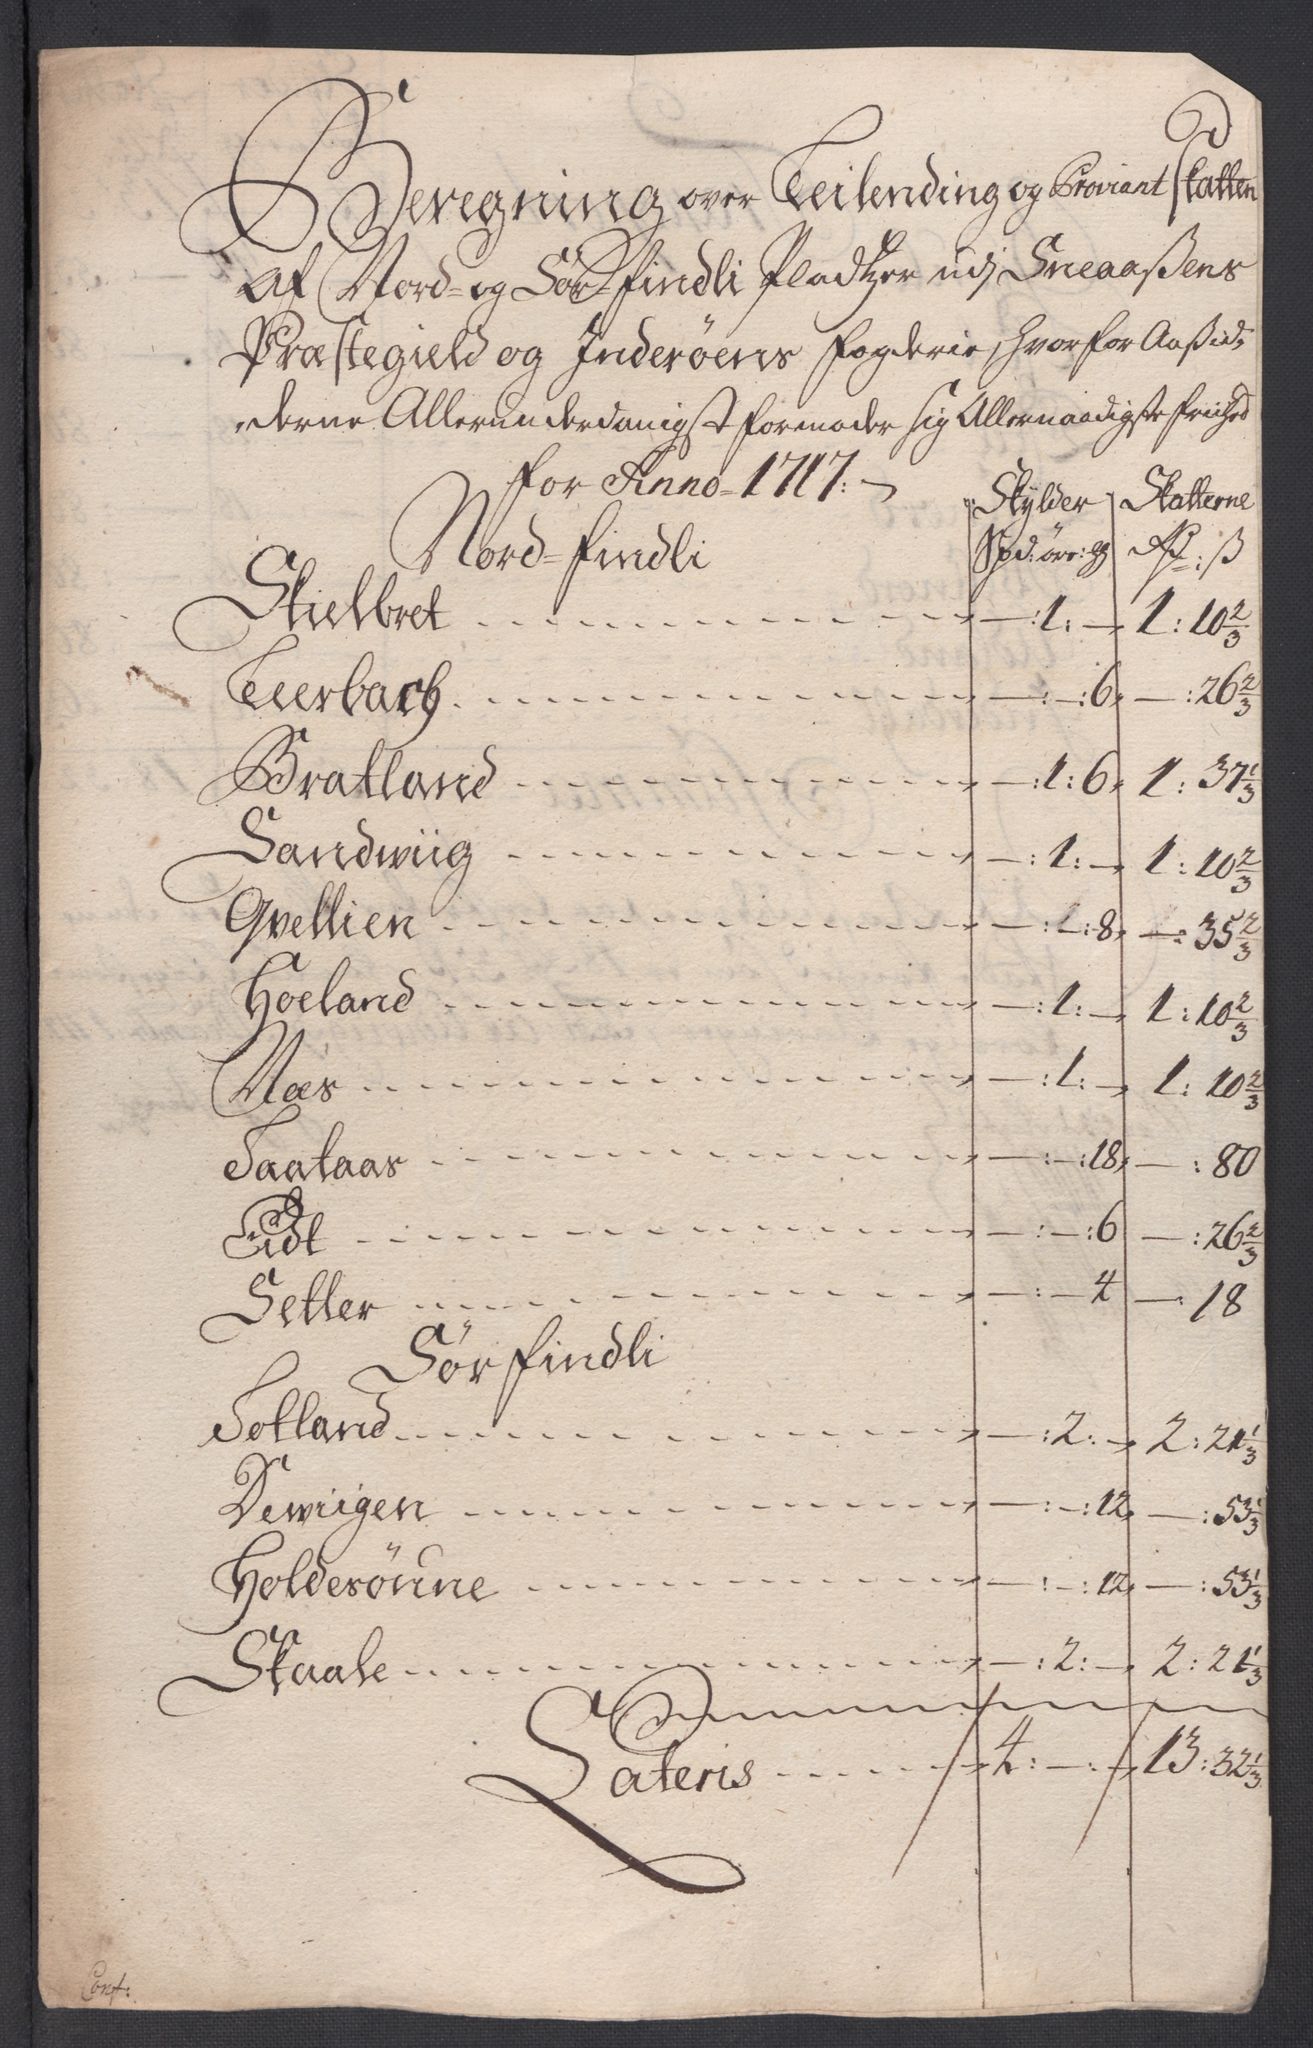 Beregning over Leilending og Proviant Skatten
af Nord- og Sør-findli Pladtzer udj Sneaaßens
Præstegield og Inderøens fogderie, hvorfor Aaßid-
derne Allerunderdanigst formoder sig Allernaadigste friihed
for Anno 1717:
Skylder Skatterne
Nord-findli Spd: öre: mkl Rd: ß
Skielbret —:1:— 1:10 2/3
Leerbach —:—:6 —:26 2/3
Bratland —:1:6 1:37 1/3
Sandwiig —:1:— 1:10 2/3
Qvellien —:—:8 —:35 2/3
Hoeland —:1:— 1:10 2/3
Næs —:1:— 1:10 2/3
Taataas —:—:18 —:80
Eidt —:—:6 —:26 2/3
Setter —:—4 —:18
Sør findli
Totland —:2:— 2:21 1/3
Dewiigen —:—:12 —:53 1/3
Holdesöune —:—:12 —:53 1/3
Skaale —:2:— 2:21 1/3
Lateris 4:—:— 13:32 1/3
Conf: